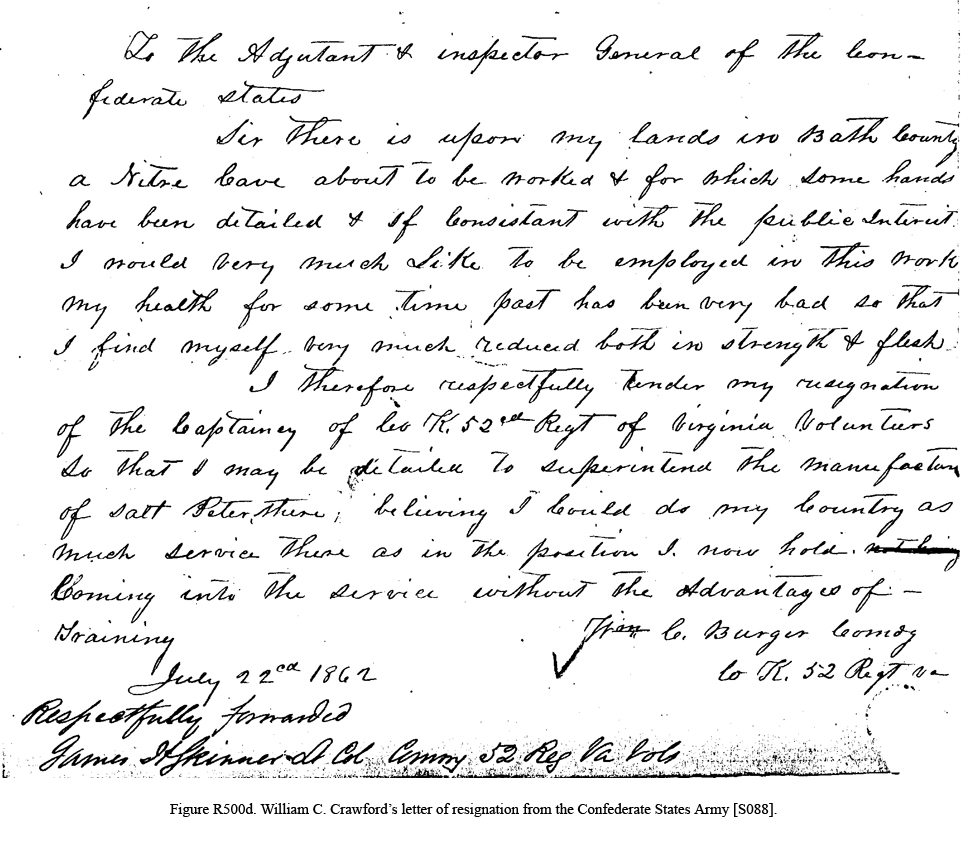 To the Adjutant & inspector General of the Con-
federate states
Sir there is upon my lands in Bath County
a Nitre Cave about to be worked & for which some hands
have been detailed & If Consistant with the public Interest
I would very much Like to be employed in this work
my health for some time past has been very bad so that
I find myself very much reduced both in strength & flesh
I therefore respectfully tender my resignation
of the Captaincy of Co K. 52nd Regt of Virginia Voluntiers
So that I may be detailed to superintend the manufactory
of salt Peter there; believing I Could do my Country as
much service there as in the position I now hold not being
Coming into the service without the Advantages of —
Training
Wm C. Burger Comdg
July 22nd 1862
Co K. 52 Regt va
Respectfully forwarded
James H Skinner Lt Col Comg 52 Reg Va Vols
Figure R500d. William C. Crawford's letter of resignation from the Confederate States Army [S088].